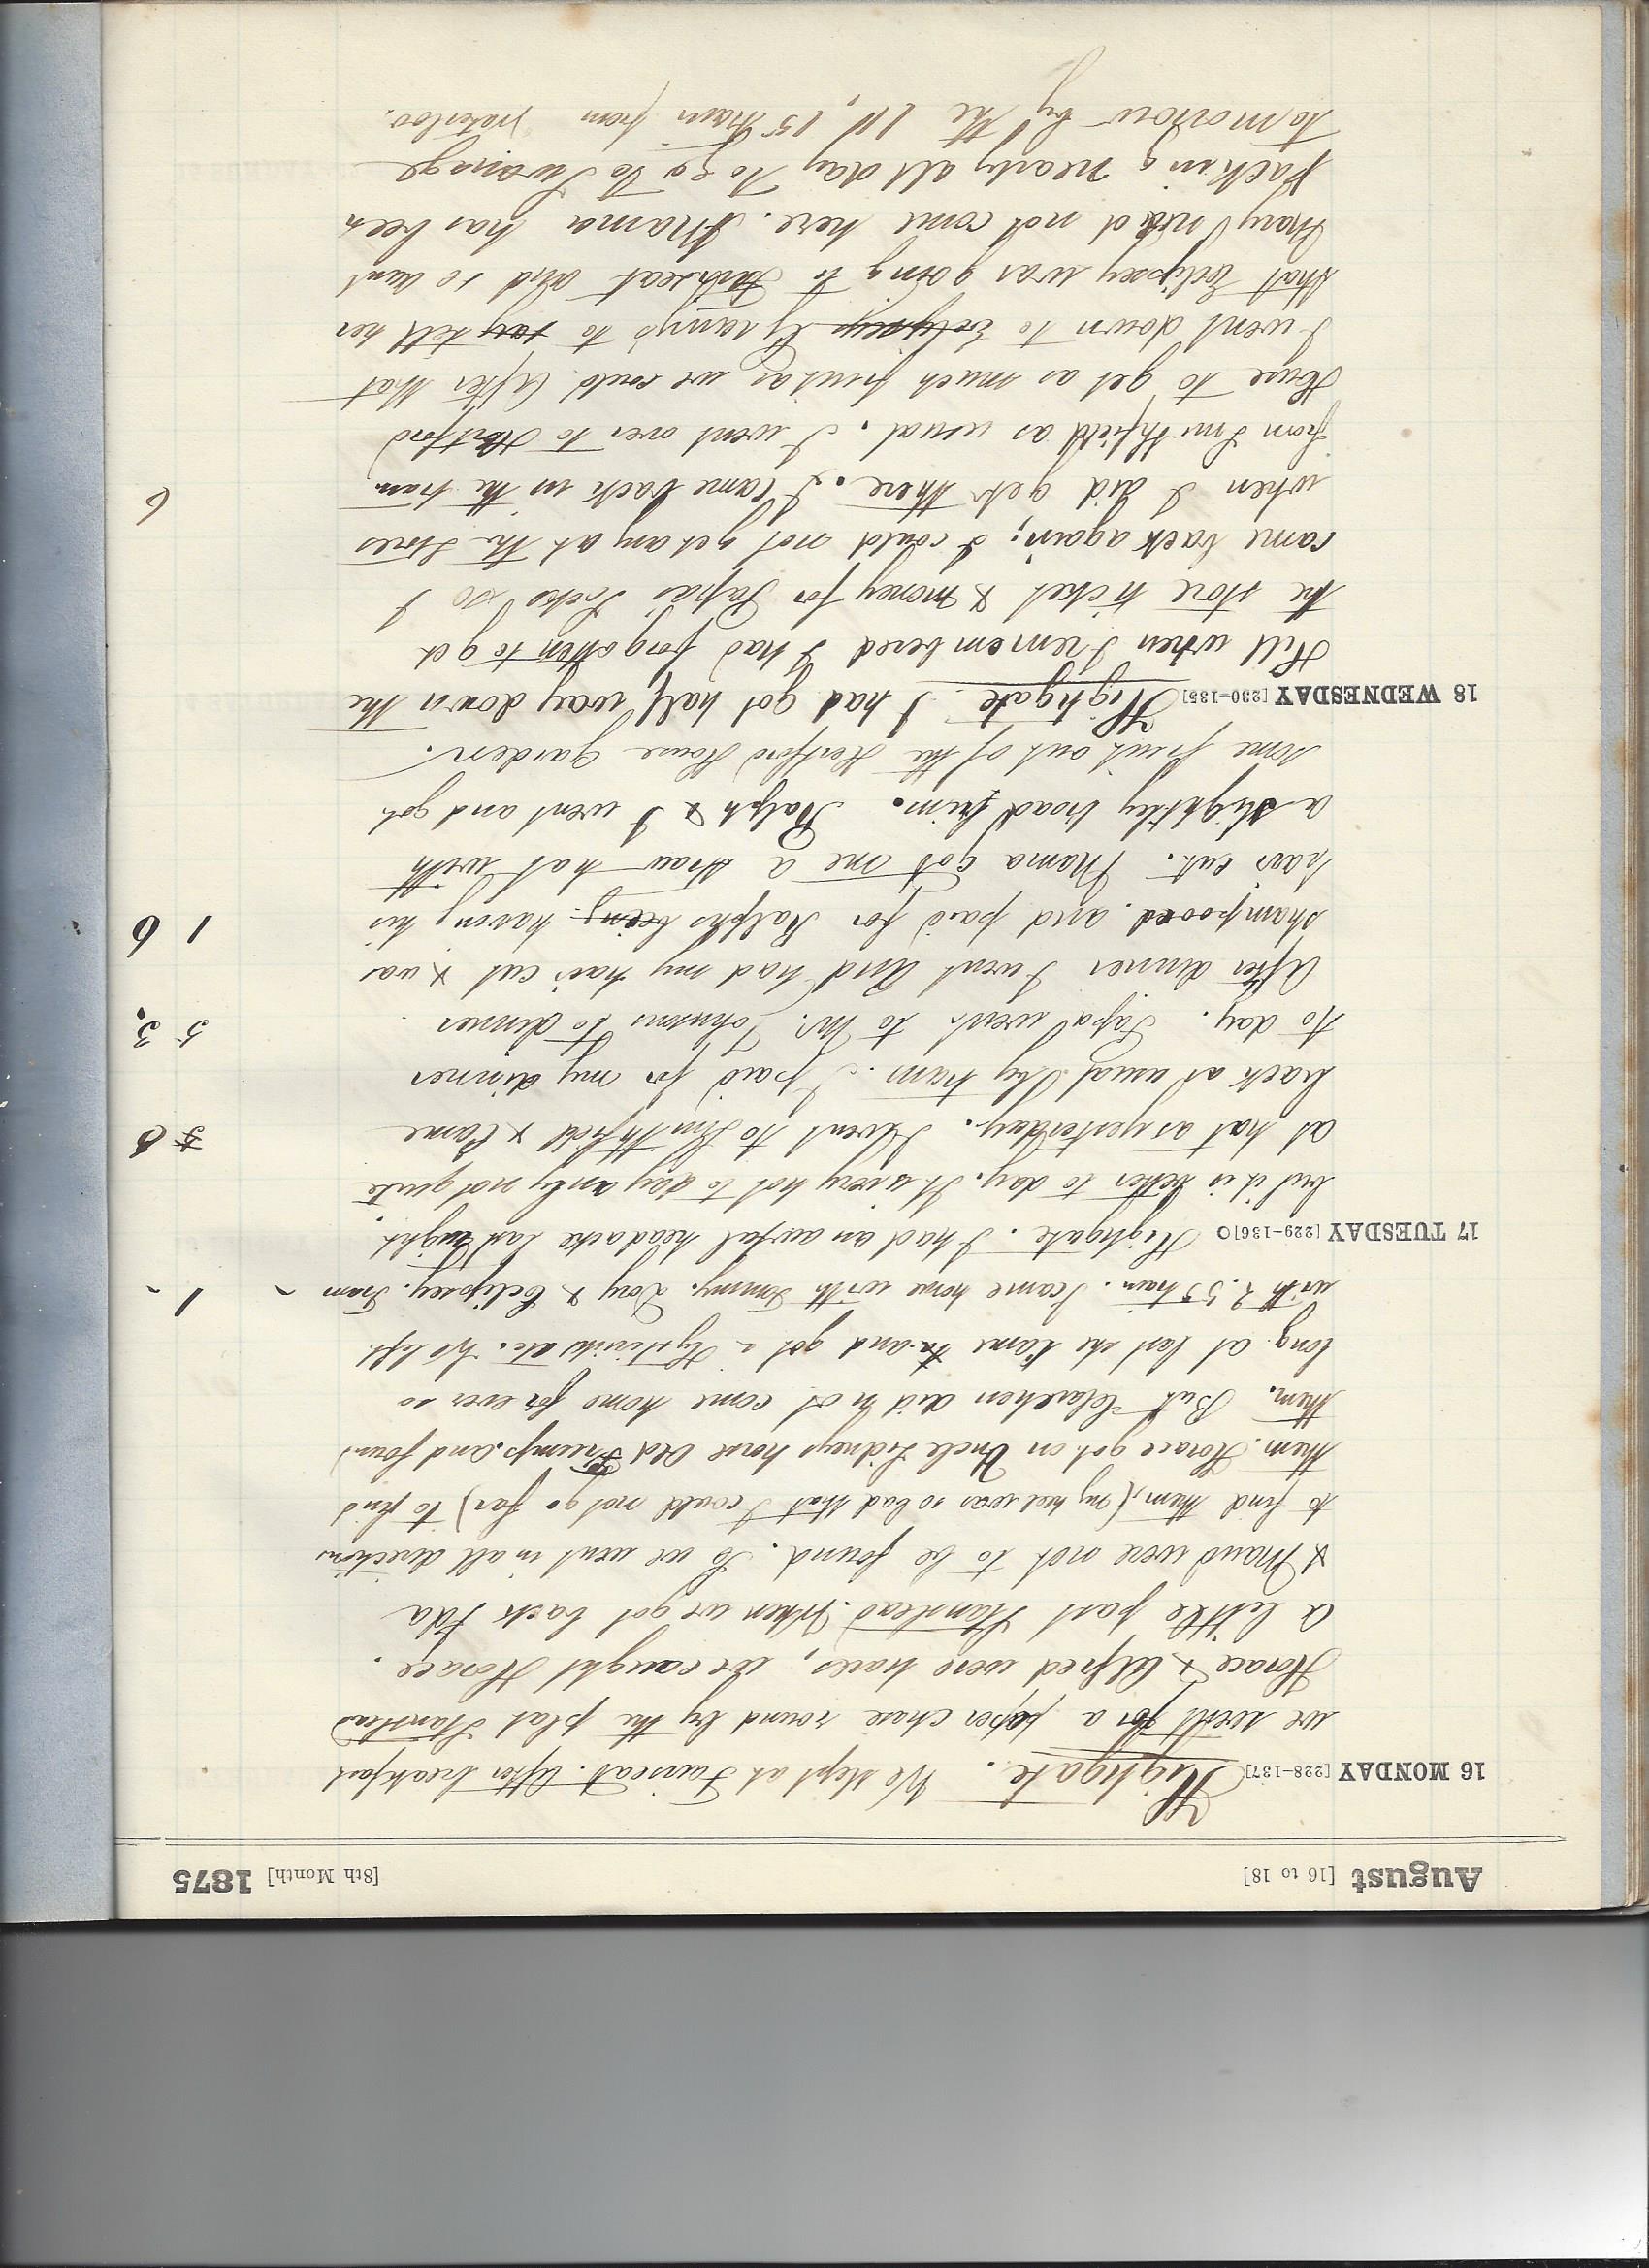 August [16 to 18] [8th Month] 1875
16 MONDAY [228-137] Highgate. We slept at Fairseat. After breakfast
we went for a paper chase round by the flat Stanstead
Horace & Alfred were hares, we caught Horace.
a little past Stanstead. When we got back Ida
& Maud were not to be found. So we went in all directions
to find them, (my heel was so bad that I could not go far) to find
them. Horace got on Uncle Sidneys horse Old Frump. and found
them. But Clarkson did not come home for ever so
long. at last she came and got Hystericks etc. We left
with 2.55 train. I came home with Tommy, Dory & Eclipsey. Tram 1 -
17 TUESDAY [229-136] Highgate. I had an awful headache last night.
but it is better to day. It is very hot to day only not quite
as hot as yesterday. I went to Smithfield & Came
back as usual by tram. I paid for my dinner
to day. Papa went to Mr. Johnsons to dinner 5 3
After dinner I went and had my hair cut & was
shampooed. and paid for Ralphs being having his 1 6
hair cut. Mama got me a straw hat with
a slightly broad brim. Ralph & I went and got
some fruit out of the Hertford House Garden.
18 WEDNESDAY [230-135] Highgate. I had got half way down the
Hill when I remembered I had forgotten to get
the store ticket & money for Papas Socks so I
came back again; I could not get any at the Stores
when I did get there. I came back in the tram 6
from Smithfield as usual. I went over to Hertford
House to get as much fruit as we could After that
I went down to Eclipseys Granny's to say tell her
that Eclipsey was going to Fairseat and so aunt
Mary need not come here. Mama has been
Packing nearly all day to go to Swanage
tomorrow by the 11,15 train from Waterloo.